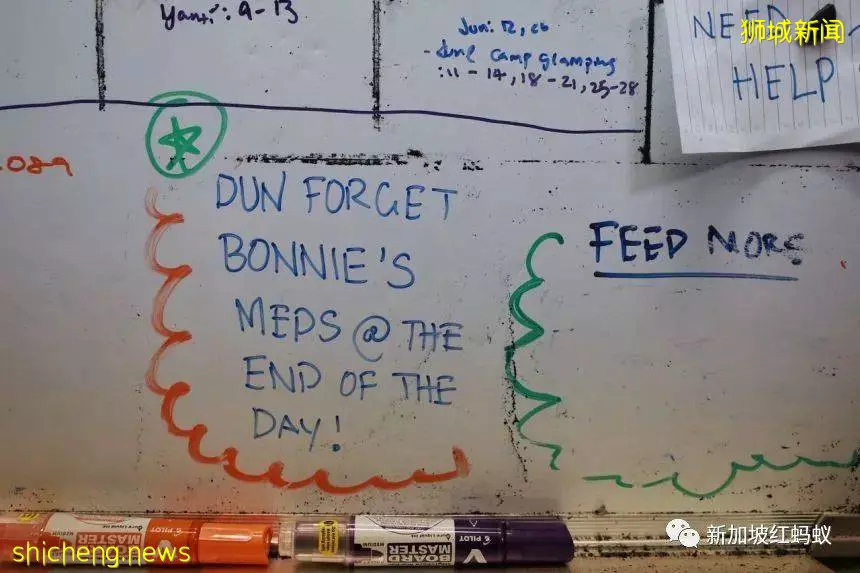 Yanti: 9-13
Jun: 12, 26
- June camp glamping
: 11 - 14, 18 - 21, 25-28
NEED
HELP
狮城新闻
089
DUN FORGET
BONNIE'S
MEDS @ THE
END OF THE
DAY!
FEED MORE
PILOT
BOARD
MASTER
MEDIUM
PILOT
BOARD
MASTER
MEDIUM
shicheng.news
新加坡红蚂蚁